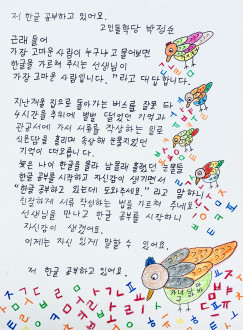 저 한글 공부하고 있어요.
고인돌학당 박점순
근래 들어
가장 고마운 사람이 누구냐고 물어보면
한글을 가르쳐 주시는 선생님이
가장 고마운 사람입니다." 라고 대답합니다.
지난겨울 집으로 돌아가는 버스를 잘못 타
4시간을 추위에 벌벌 떨었던 기억과
관공서에 가서 서류를 작성하는 일로
식은땀을 흘리며 속상해 눈물지었던
기억이 떠오릅니다.
늦은 나이 한글을 몰라 남몰래 흘렸던 눈물들
한글 공부 시작하고 자신감이 생기면서
"한글 공부하고 있는데 도와주세요." 라고 말하니
친절하게 서류 작성하는 법을 가르쳐 주네요
선생님을 만나고 한글 공부를 시작하니
자신감이 생겼어요.
이제는 자신 있게 말할 수 있어요.
저 한글 공부하고 있어요.